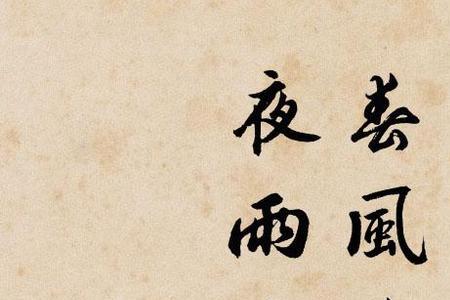 春風
夜雨